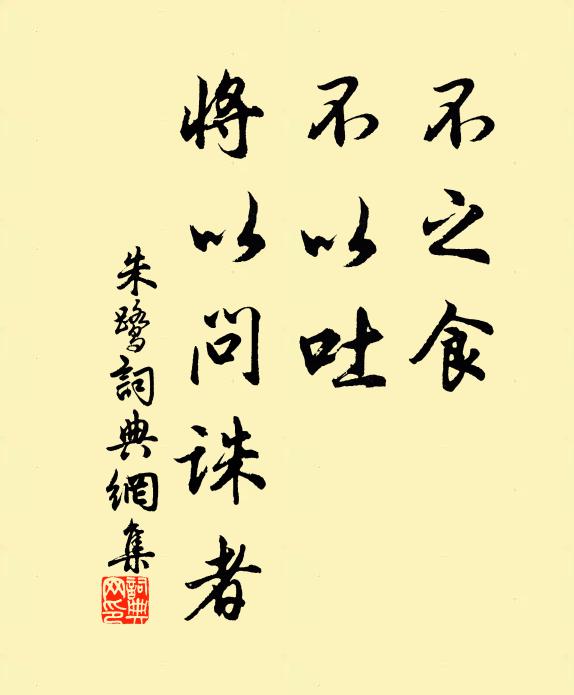 不之食
不以吐
將以問誅者
朱鷺詞典網集
詞典網印